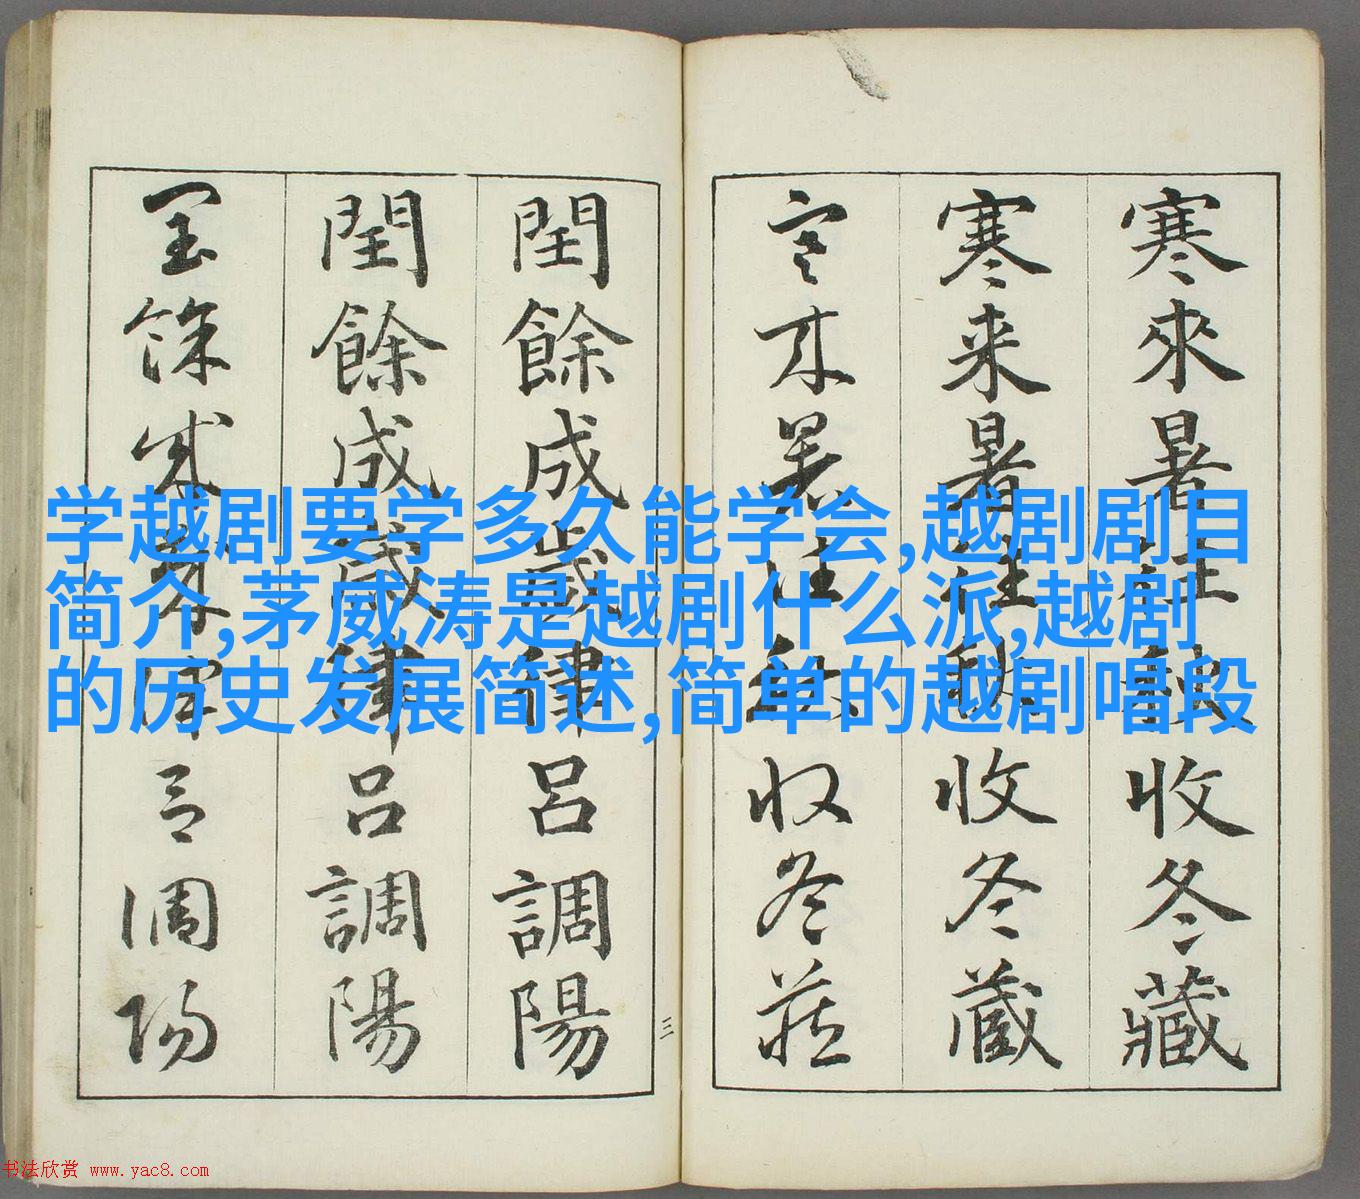 寒來暑往秋收冬藏
寒来暑往秋收冬藏
寒来暑往秋收冬藏
閏餘成歲律呂調陽
閏餘成歲律呂調陽
閏餘成歲律呂調陽
三
学越剧要学多久能学会,越剧剧目
简介,茅威涛是越剧什么派,越剧
的历史发展简述,简单的越剧唱段
书法欣赏 www.yac8.com